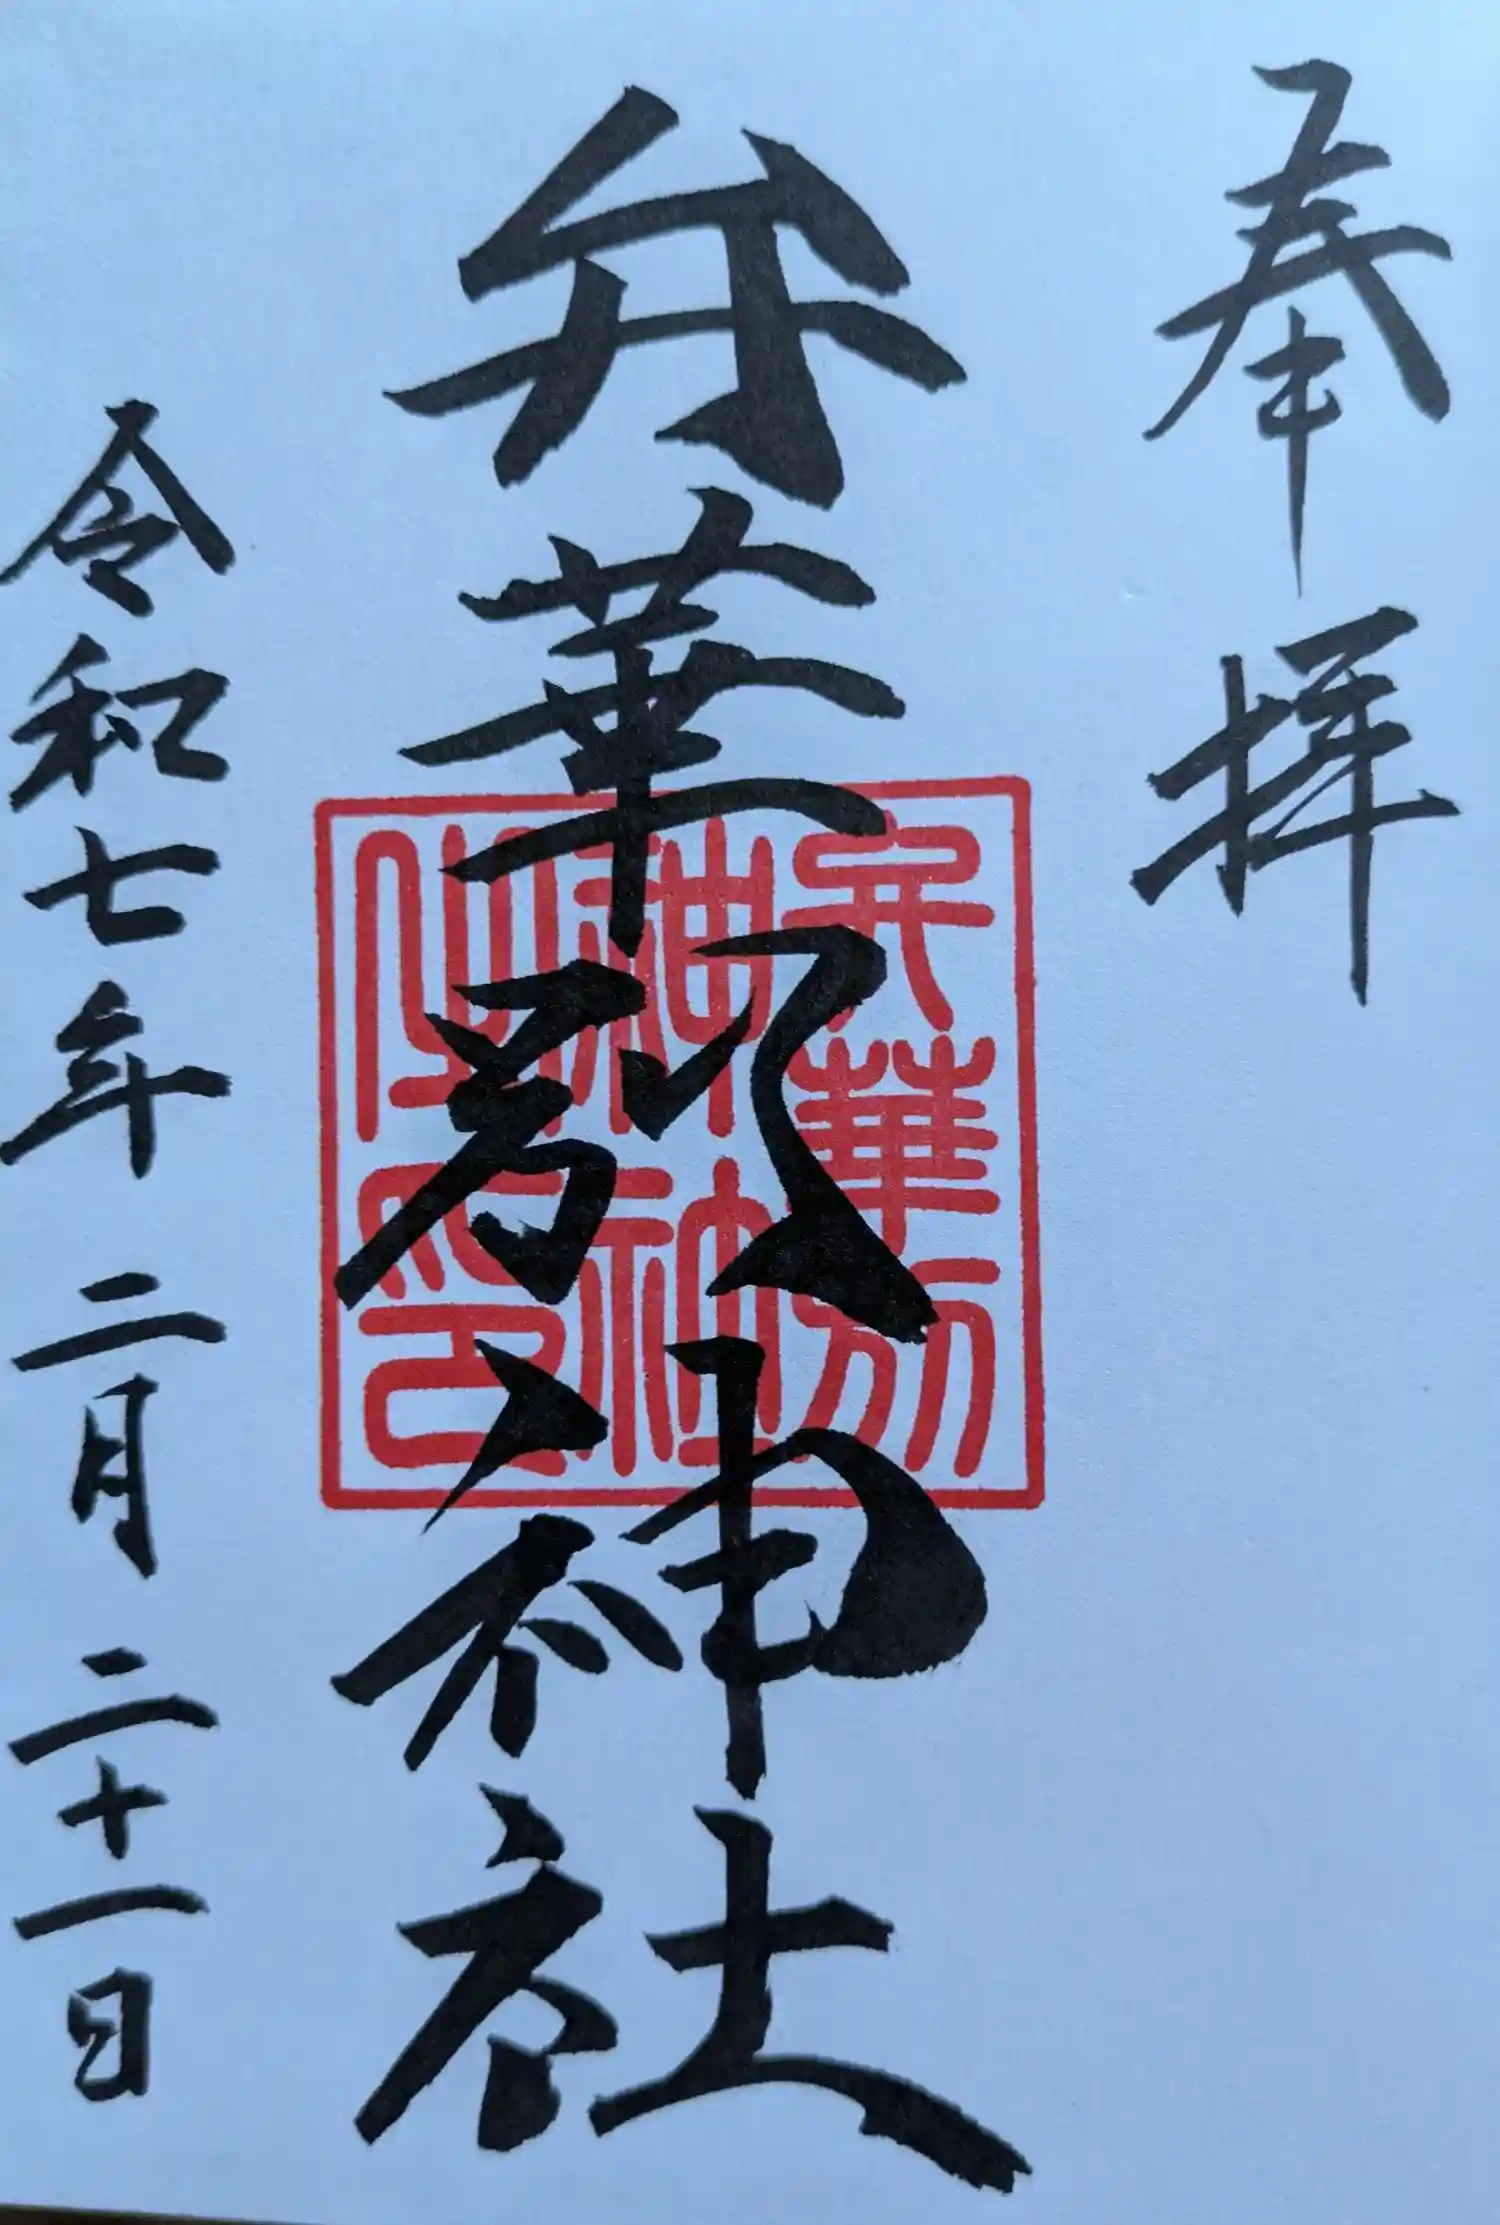 奉拝
弁華別神社
弁華別
神社
印
令和七年二月二十一日